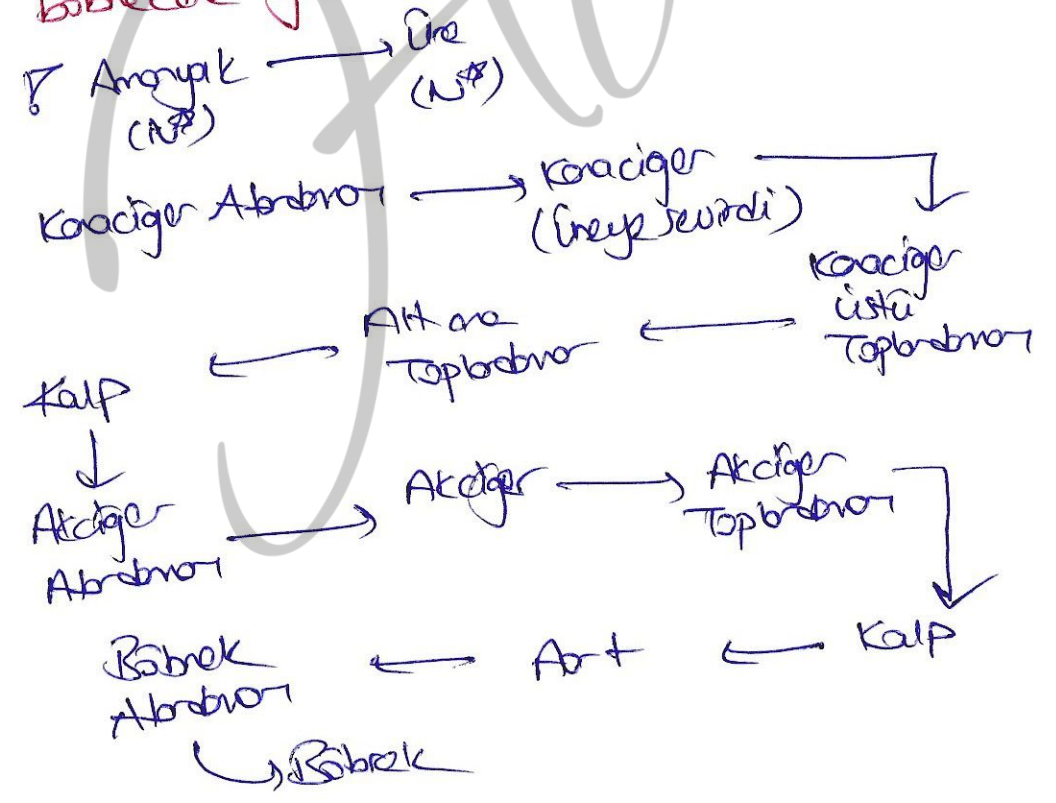 Amonyak → Üre
(N*) (N*)
Karaciğer Atardamarı → Karaciğer
(Üreye çevirdi)
Karaciğer
üstü
Toplardamarı
Alt ana
Toplardamar
Kalp
Akciğer
Atardamarı
Akciğer → Akciğer
Toplardamarı
Kalp
Aort
Böbrek
Atardamarı
Böbrek